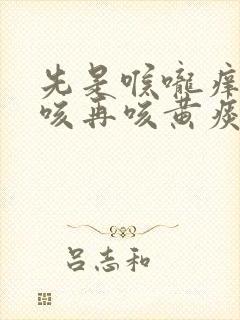 先是喉咙痒
咳再咳黄痰
吕志和